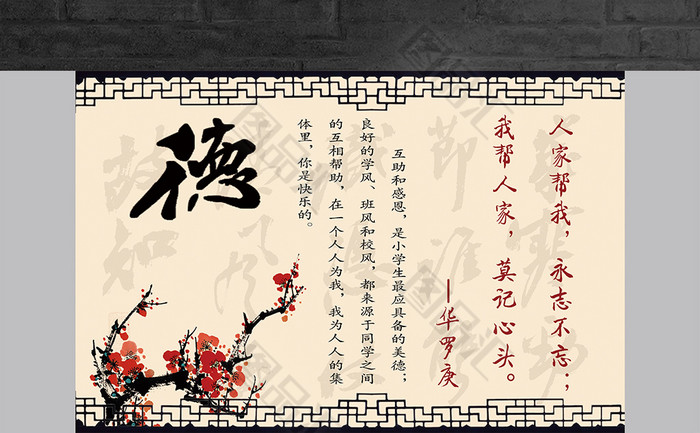 人家帮我，永志不忘；
我帮人家，莫记心头。
—华罗庚
互助和感恩，是小学生最应具备的美德；
良好的学风、班风和校风，都来源于同学之间
的互相帮助，在一个人人为我，我为人人的集
体里，你是快乐的。
德